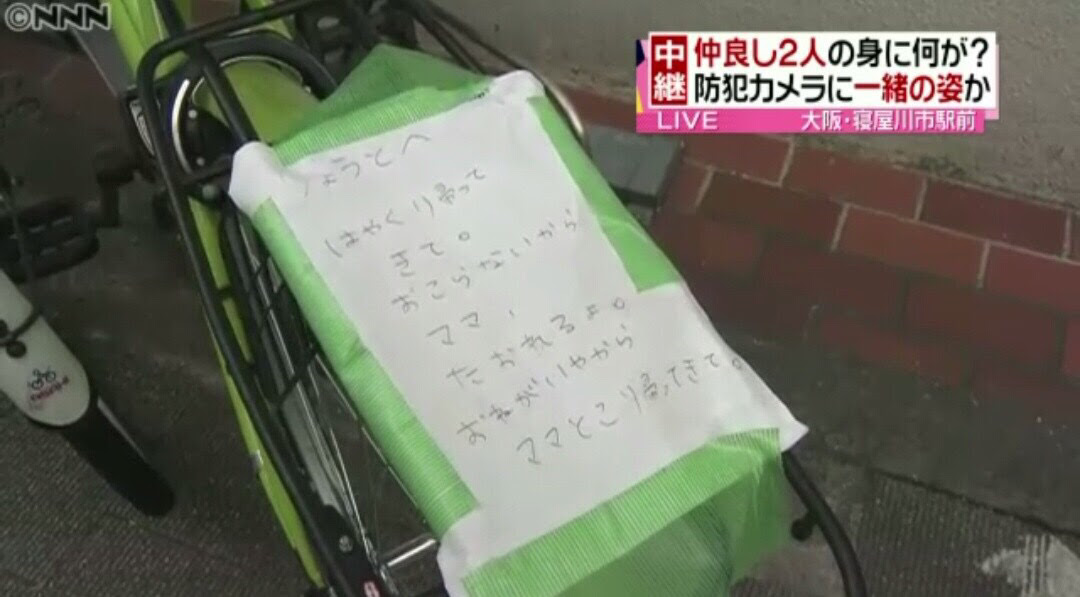 ©NNN
中継
仲良し2人の身に何が?
防犯カメラに一緒の姿か
LIVE
大阪・寝屋川市駅前
りょうとへ
はやくり帰って
きて。
おこらないから
ママ、
たおれるよ。
おねがいやから
ママとこり帰ってきて。